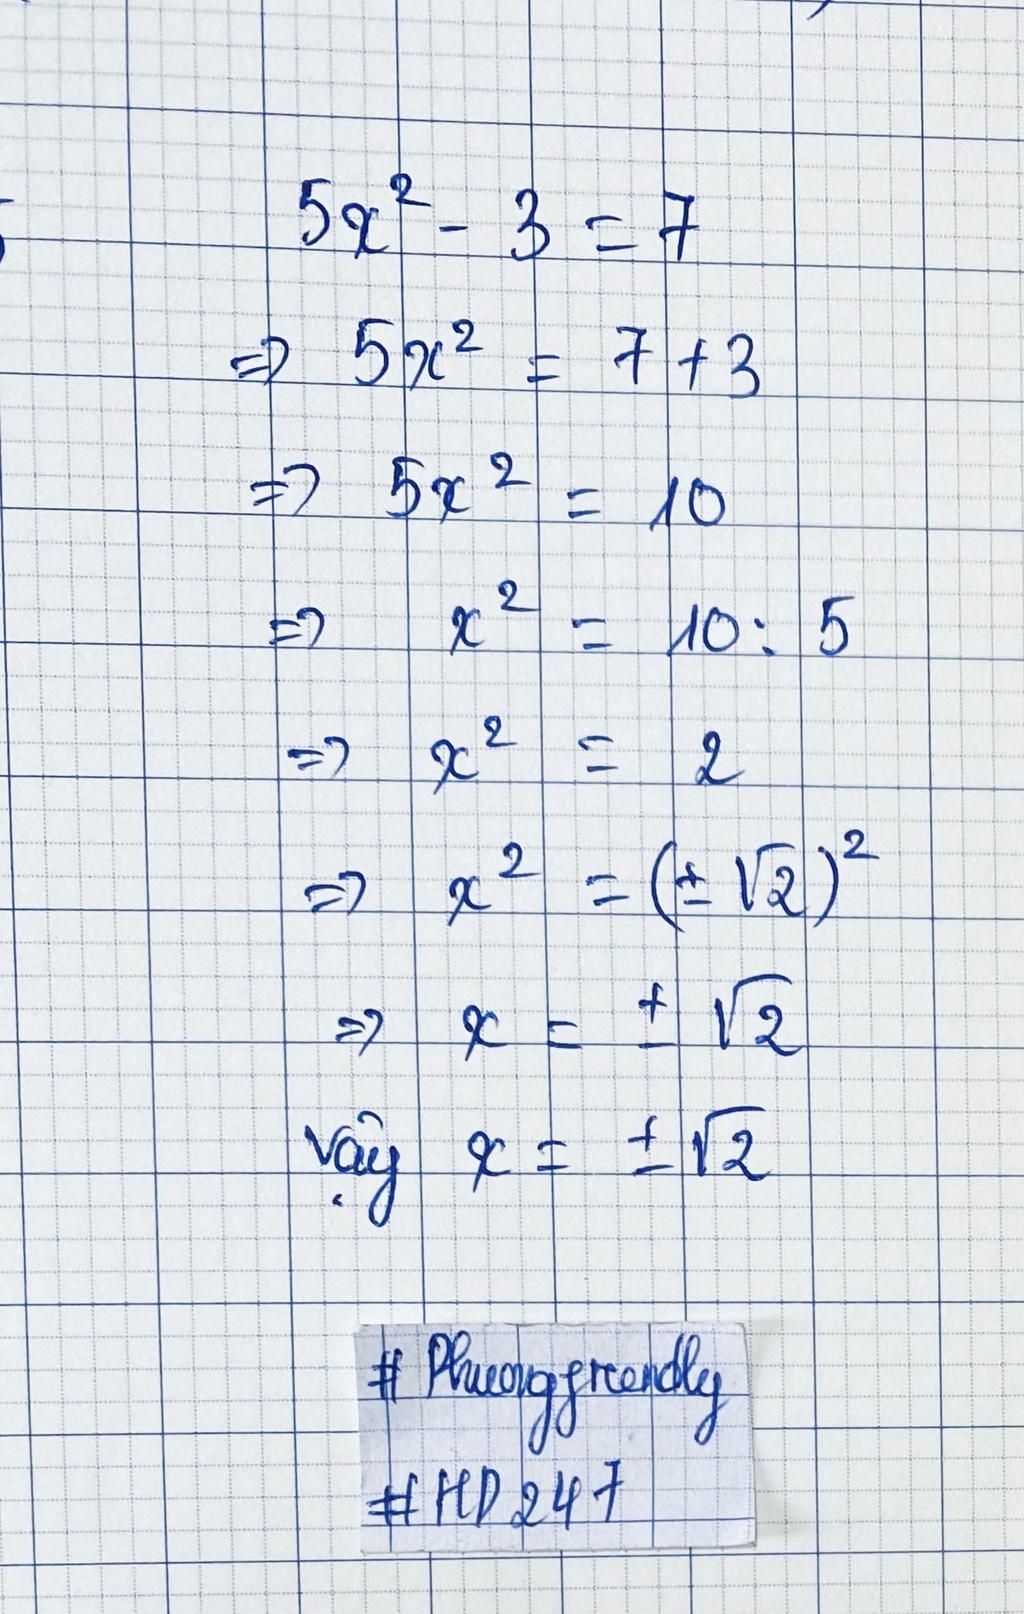 5x² - 3 = 7
=> 5x² = 7 + 3
=> 5x² = 10
=> x² = 10 : 5
=> x² = 2
=> x² = (± √2)²
=> x = ± √2
vậy x = ± √2
# Phuonggreendly
#HD247